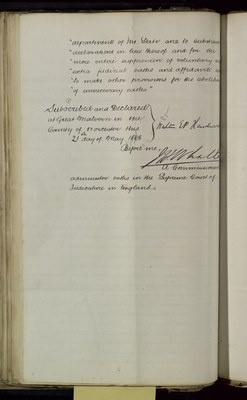 "departments of the State and to substitute
"declarations in lieu thereof and for the
"more entire suppression of voluntary and
"extra judicial oaths and affidavits and
"to make other provisions for the abolition
"of unnecessary oaths"
Subscribed and Declared
at Great Malvern in the
County of Worcester this
21 day of May 18
Before me,
A Commissioner
administer oaths in the Supreme Court of
Judicature in England.